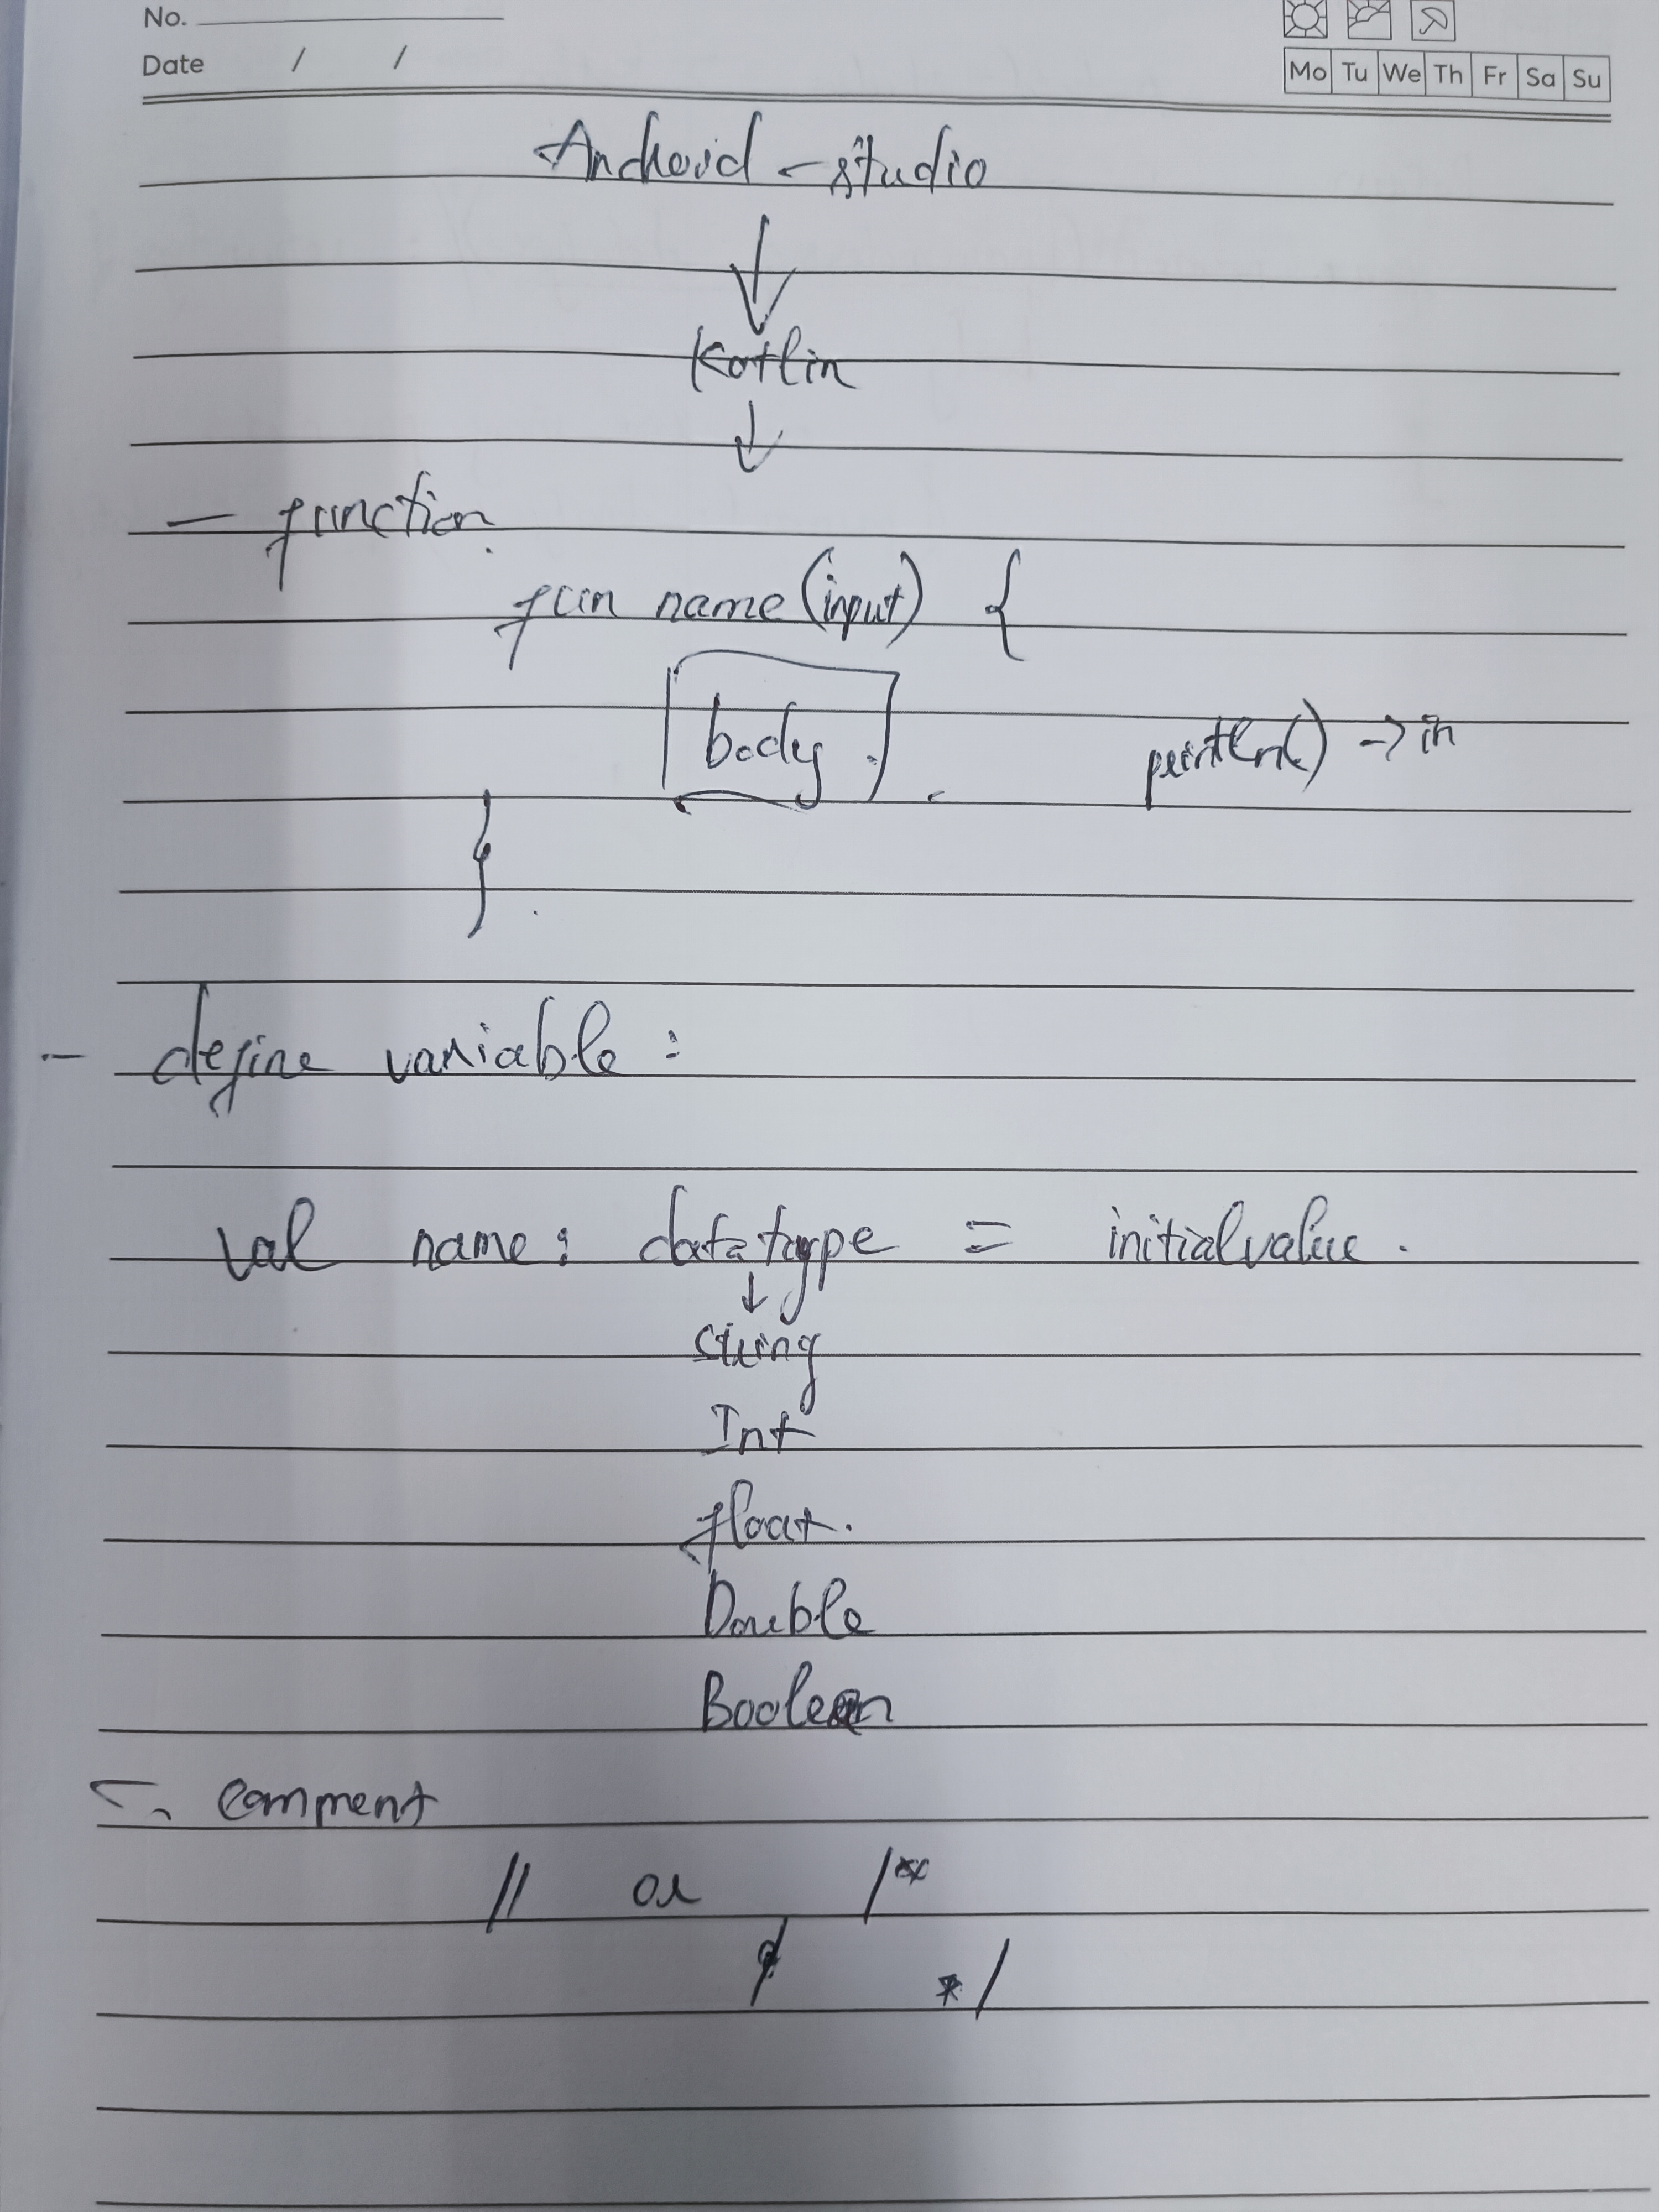 No.
Date / /
Mo Tu We Th Fr Sa Su
Android - studio
↓
Kotlin
↓
- function
fun name (input) {
body
println() -> in
}
- define variable :
val name : datatype = initialvalue .
↓
String
Int
float.
Double
Boolean
- Comment
// or /*
*/